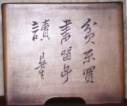 貧不賣
書留子
讀